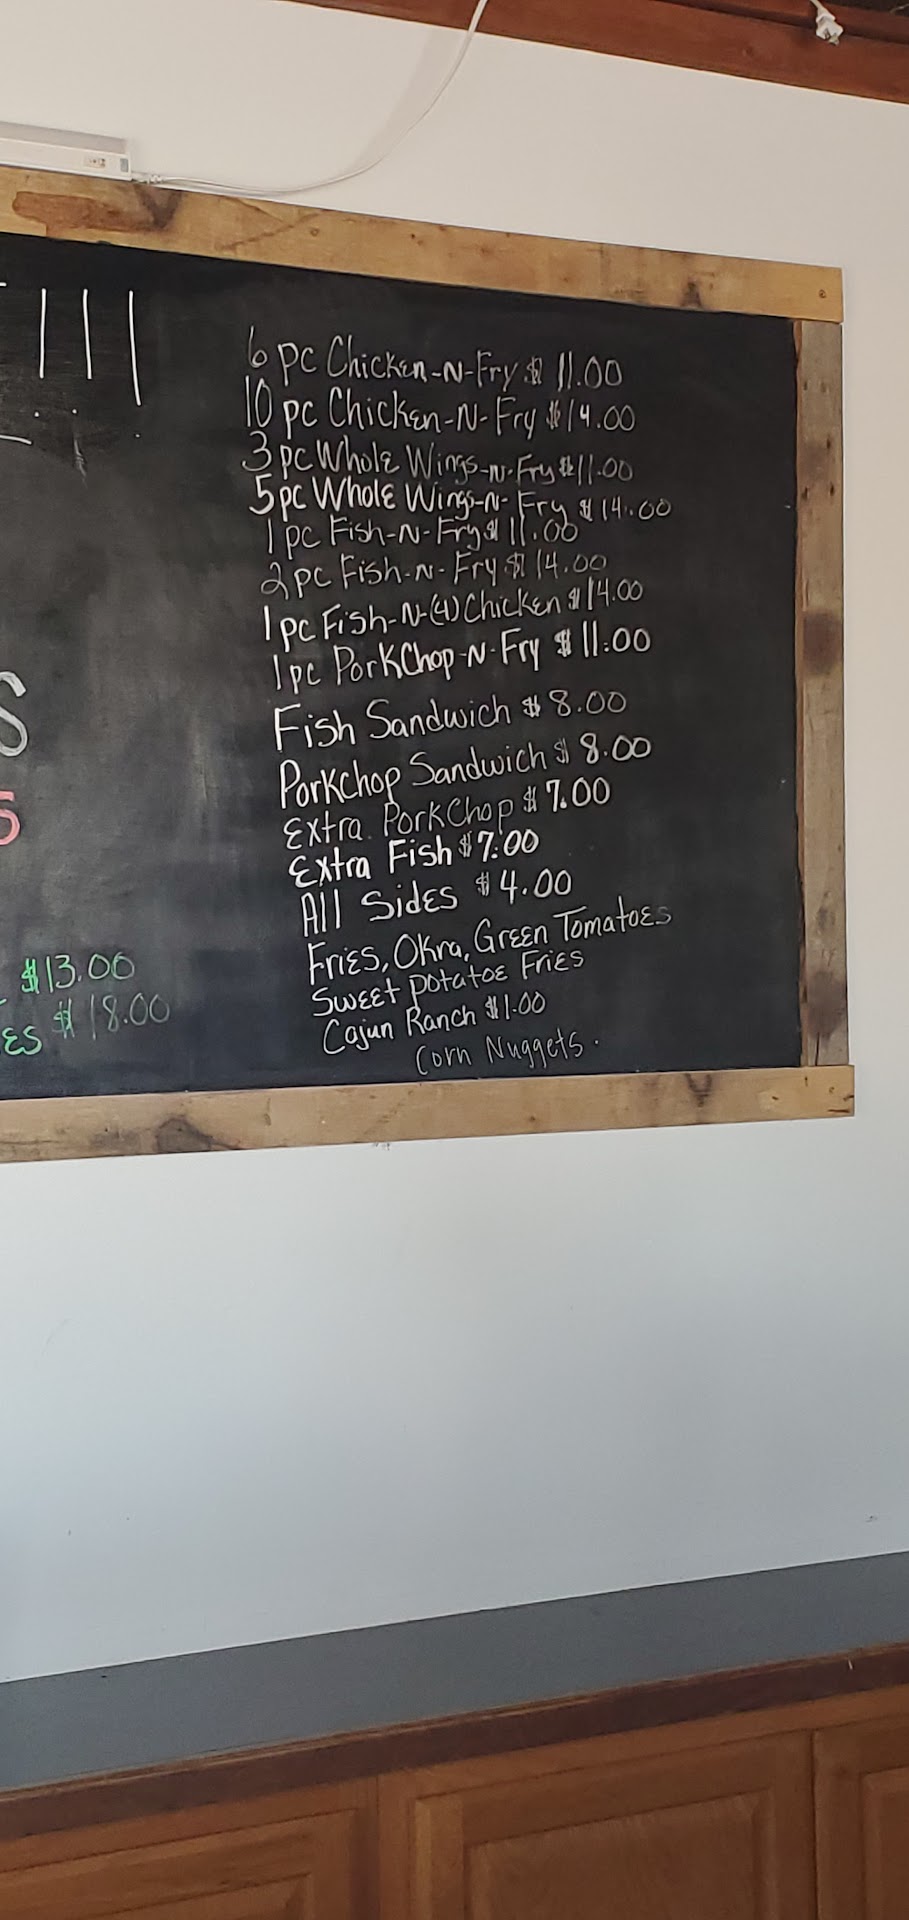 6 pc Chicken-N-Fry $ 11.00
10 pc Chicken-N-Fry $14.00
3 pc Whole Wings-N-Fry $11.00
5 pc Whole Wings-N-Fry $ 14.00
1 pc Fish-N-Fry $ 11.00
2 pc Fish-N-Fry $ 14.00
1 pc Fish-N-(4) Chicken $ 14.00
1 pc PorkChop-N-Fry $ 11.00
Fish Sandwich $ 8.00
Porkchop Sandwich $ 8.00
Extra PorkChop $ 7.00
Extra Fish $ 7.00
All Sides $ 4.00
Fries, Okra, Green Tomatoes
Sweet Potatoe Fries
Cajun Ranch $ 1.00
Corn Nuggets.
S
5
$13.00
ES $ 18.00